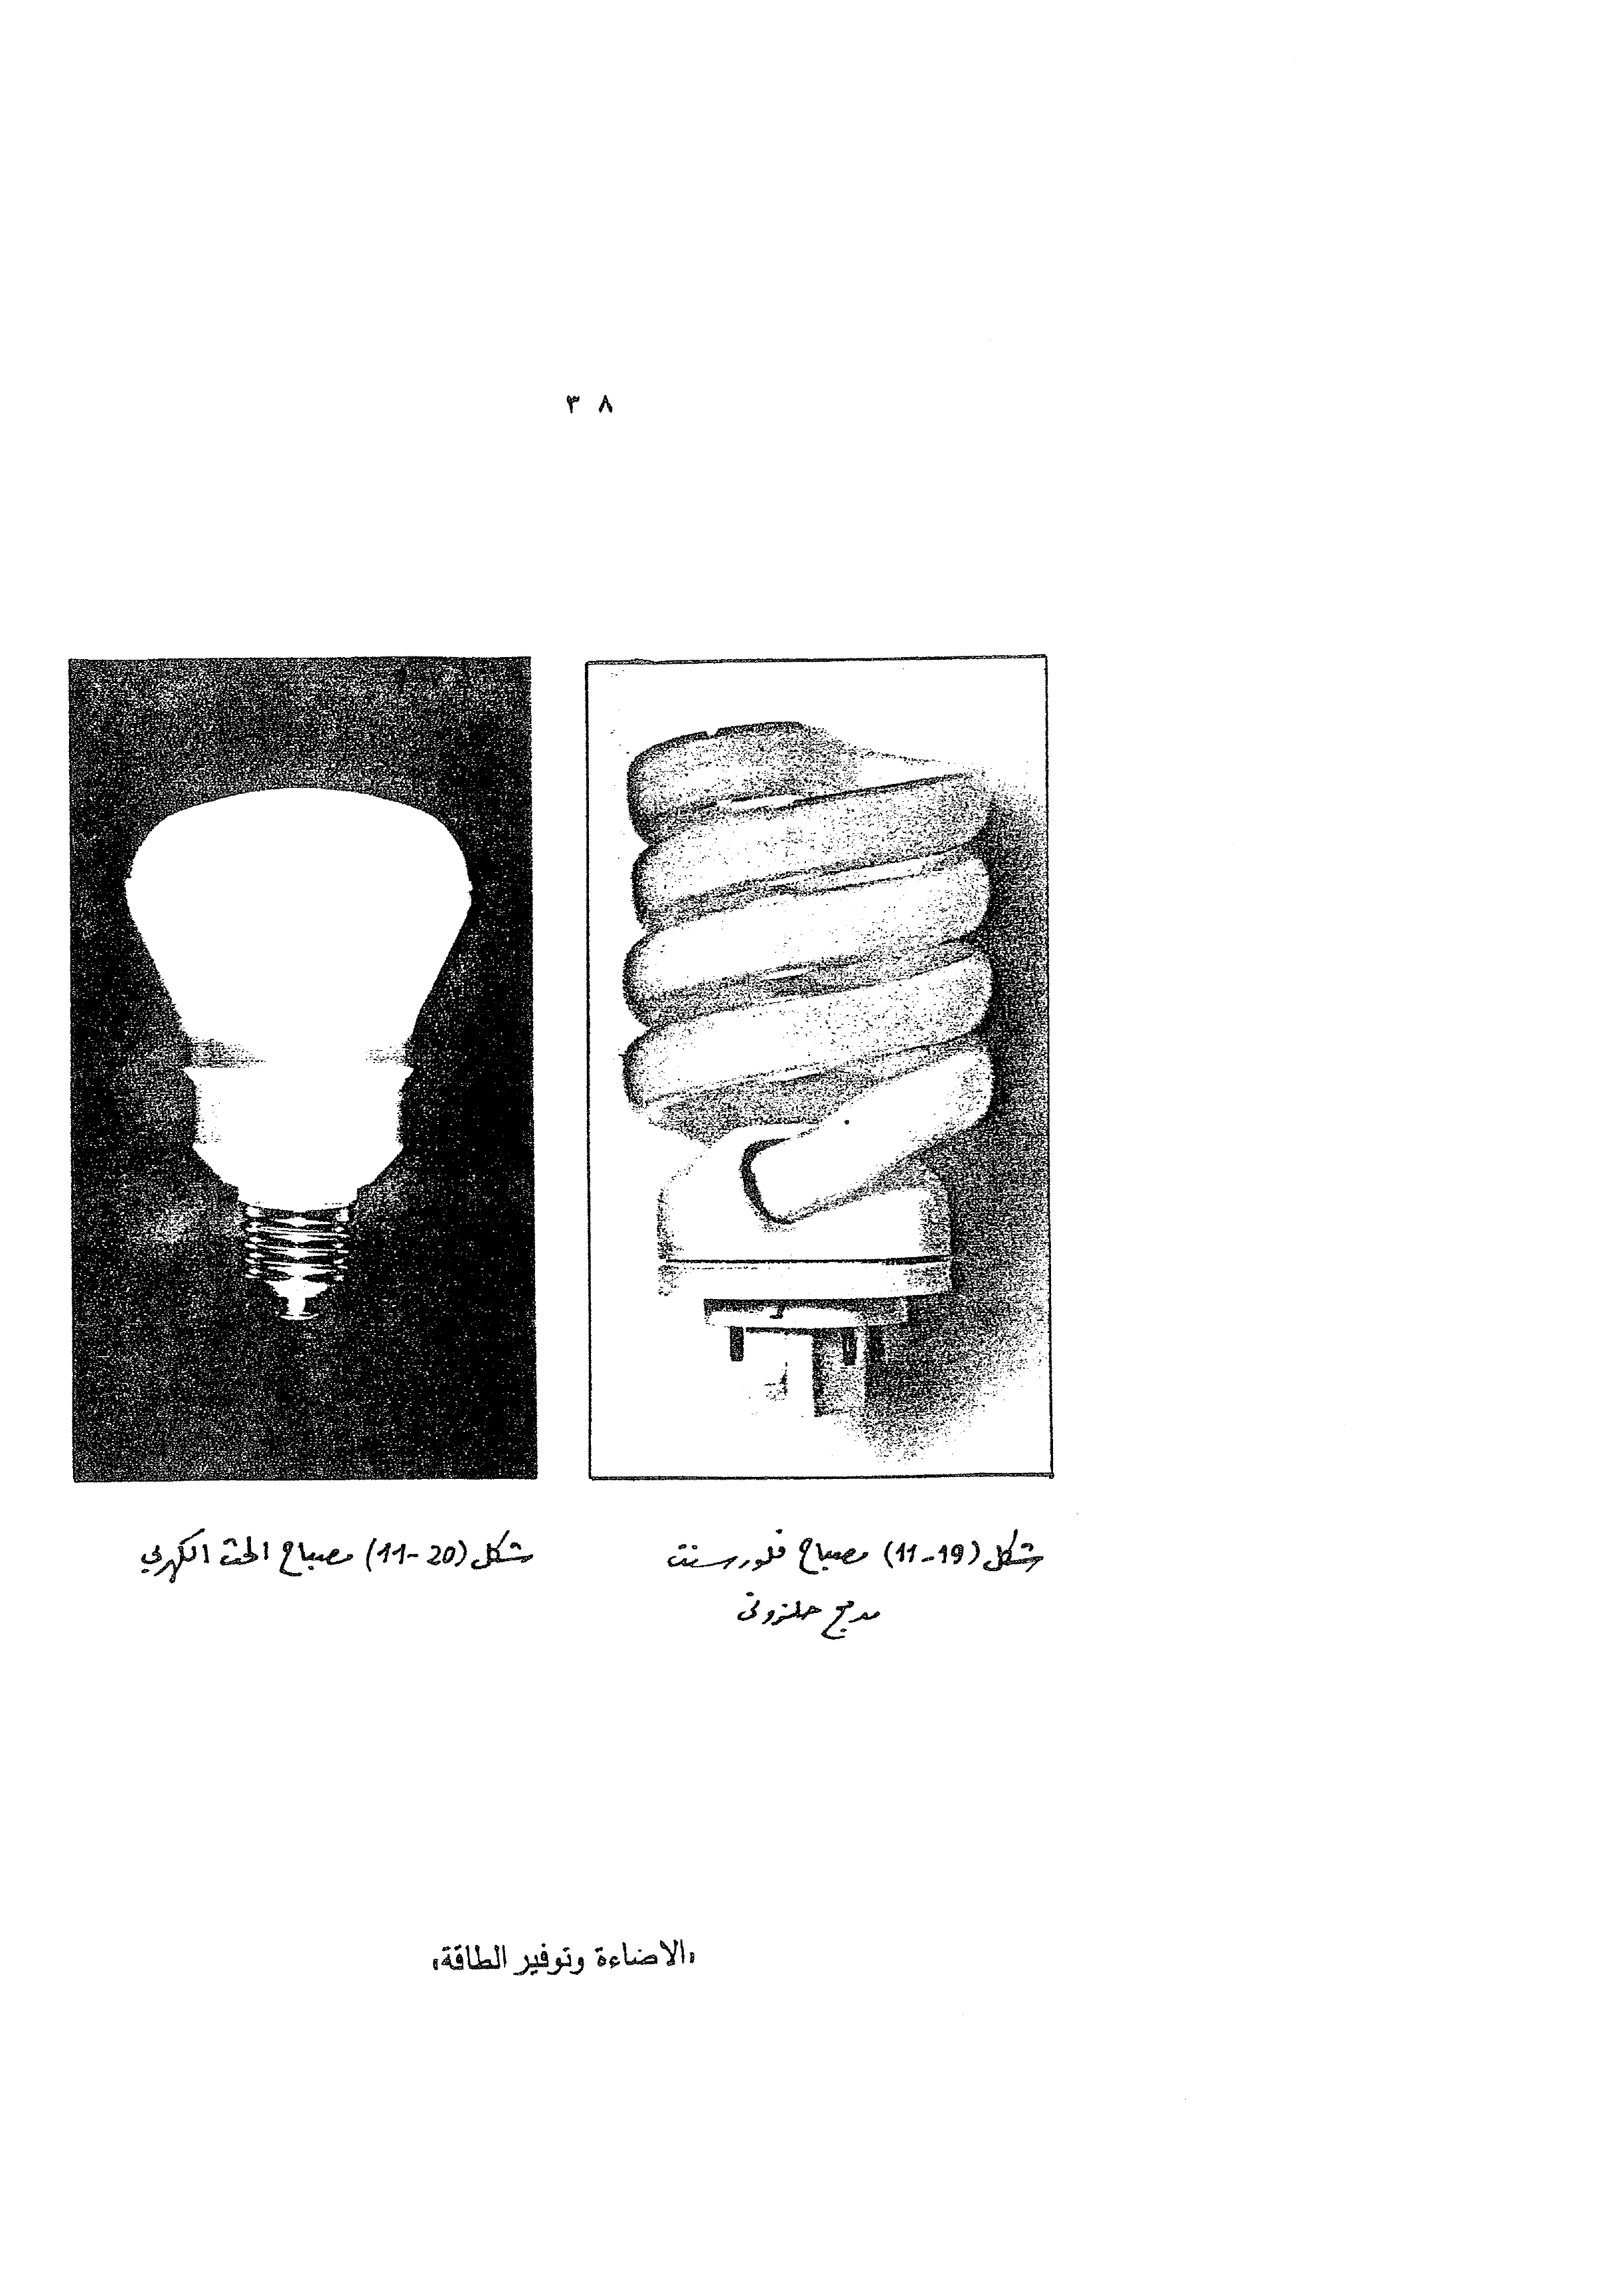 ٣ ٨
شكل (11-19) مصباح فلورسنت
مدمج حلزوني
شكل (11-20) مصباح الحث الكهربي
"الاضاءة وتوفير الطاقة"